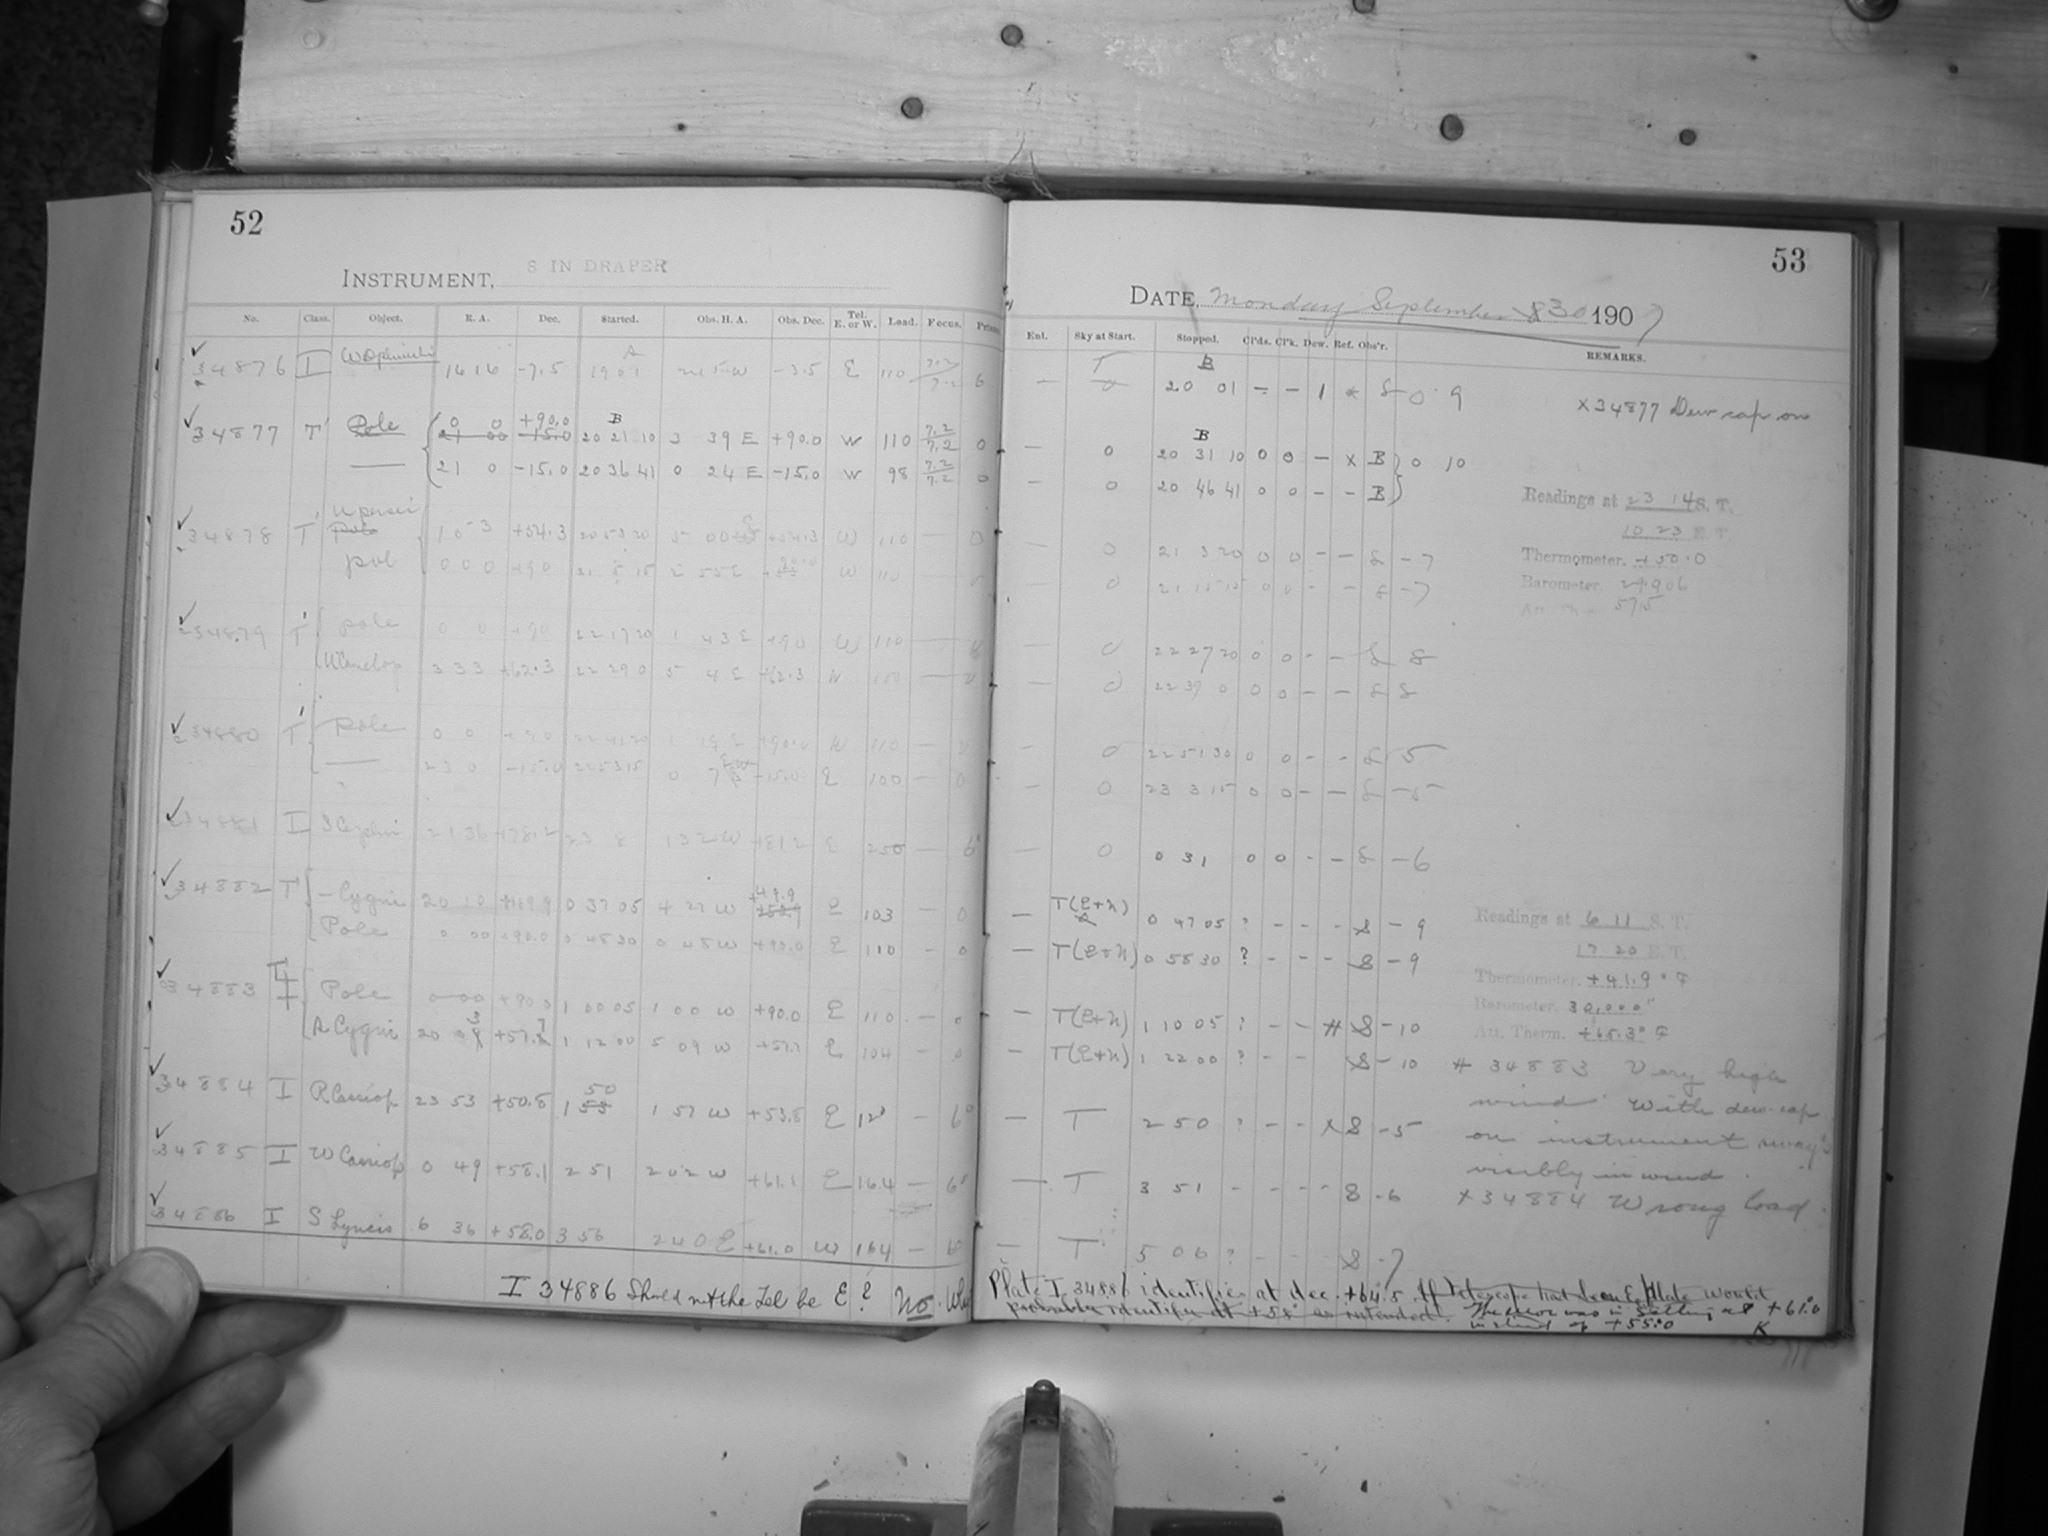 52
INSTRUMENT, 8 IN DRAPER
No. Class. Object. R. A. Dec. Started. Obs. H. A. Obs. Dec. Tel. E. or W. Load. Focus.
34876 I W Ophiuchi 16 16 -7.5 E 110 6
34877 T Pole 0 0 +90.0 20 21 10 3 39 E +90.0 W 110 7.2 7.2 0
21 0 -15.0 20 36 41 0 24 E -15.0 W 98 7.2 7.2 0
34878 T U Persei 1 53 +54.3 20 53 20 W 110 — 0
pole 0 0 0 +90 21 5 15 2 55 E W 110
34879 T pole 0 0 +90 22 17 20 1 43 E +90 W 110
3 33 +62.3 22 29 0 5 4 E +62.3 W 110
34880 T pole 0 0 +90 1 19 E +90.0 W 110 — 0
23 0 -15.0 22 53 15 0 7 -15.0 E 100 — 0
34881 I S Cephei 21 36 +78.2 23 8 1 32 W +81 2 E 250 — 6
34882 T — Cygni 20 10 +49.9 0 37 05 4 27 W +49.9 E 103 — 0
Pole 0 00 +90.0 0 48 30 0 48 W +90.0 E 110 — 0
34883 T Pole 0 00 +90.0 1 00 05 1 00 W +90.0 E 110 — 0
Cygni 20 03 +57.7 1 12 00 5 09 W +57.7 E 104 — 0
34884 I R Cassiop 23 53 +50.8 1 50 1 57 W +53.8 E — 6
34885 I W Cassiop 0 49 +58.1 2 51 2 02 W +61.1 E 16.4 — 6
34886 I S Lyncis 6 36 +58.0 3 56 2 40 E +61.0 W 164 — 6
I 34886 Should not the Tel be E? No.
53
DATE, Monday September 30 1907
Ent. Sky at Start. Stopped. Cl'ds. Cl'k. Dew. Ref. Obs'r. REMARKS.
— T 20 01 - - 1 * S 0 9
x 34877 Dew cap on
— 0 20 31 10 0 0 — x B 0 10
— 0 20 46 41 0 0 - - B
Readings at 23 14 S. T.
10 23 E. T.
— 0 21 3 20 0 0 - - S - 7
Thermometer. +50.0
— 0 21 15 15 0 0 - - S - 7
Barometer. 29.906
— 0 22 27 20 0 0 - - S 8
— 0 22 39 0 0 0 - - S 8
— 0 22 51 30 0 0 - - S 5
— 0 23 3 15 0 0 - - S - 5
— 0 0 31 0 0 - - S - 6
— T(E+N) 0 47 05 ? - - - S - 9
Readings at 6 11 S. T.
— T(E+N) 0 58 30 ? - - - S - 9
17 20 E. T.
Thermometer. +41.9° F
Barometer. 30.000"
— T(E+N) 1 10 05 ? - - # S - 10
Att. Therm. +65.3° F
— T(E+N) 1 22 00 ? - - S - 10
# 34883 Very high
wind. With dew-cap
— T 2 50 ? - - x S - 5
on instrument sways
visibly in wind.
— T 3 51 - - - - S - 6
x 34884 Wrong load.
— T 5 06 ? - - - S - 7
Plate I 34886 identifies at dec. +64.5. If telescope had been E, Plate would
probably identify at +58° as intended. The error was in setting at +61.0
instead of +55.0 K